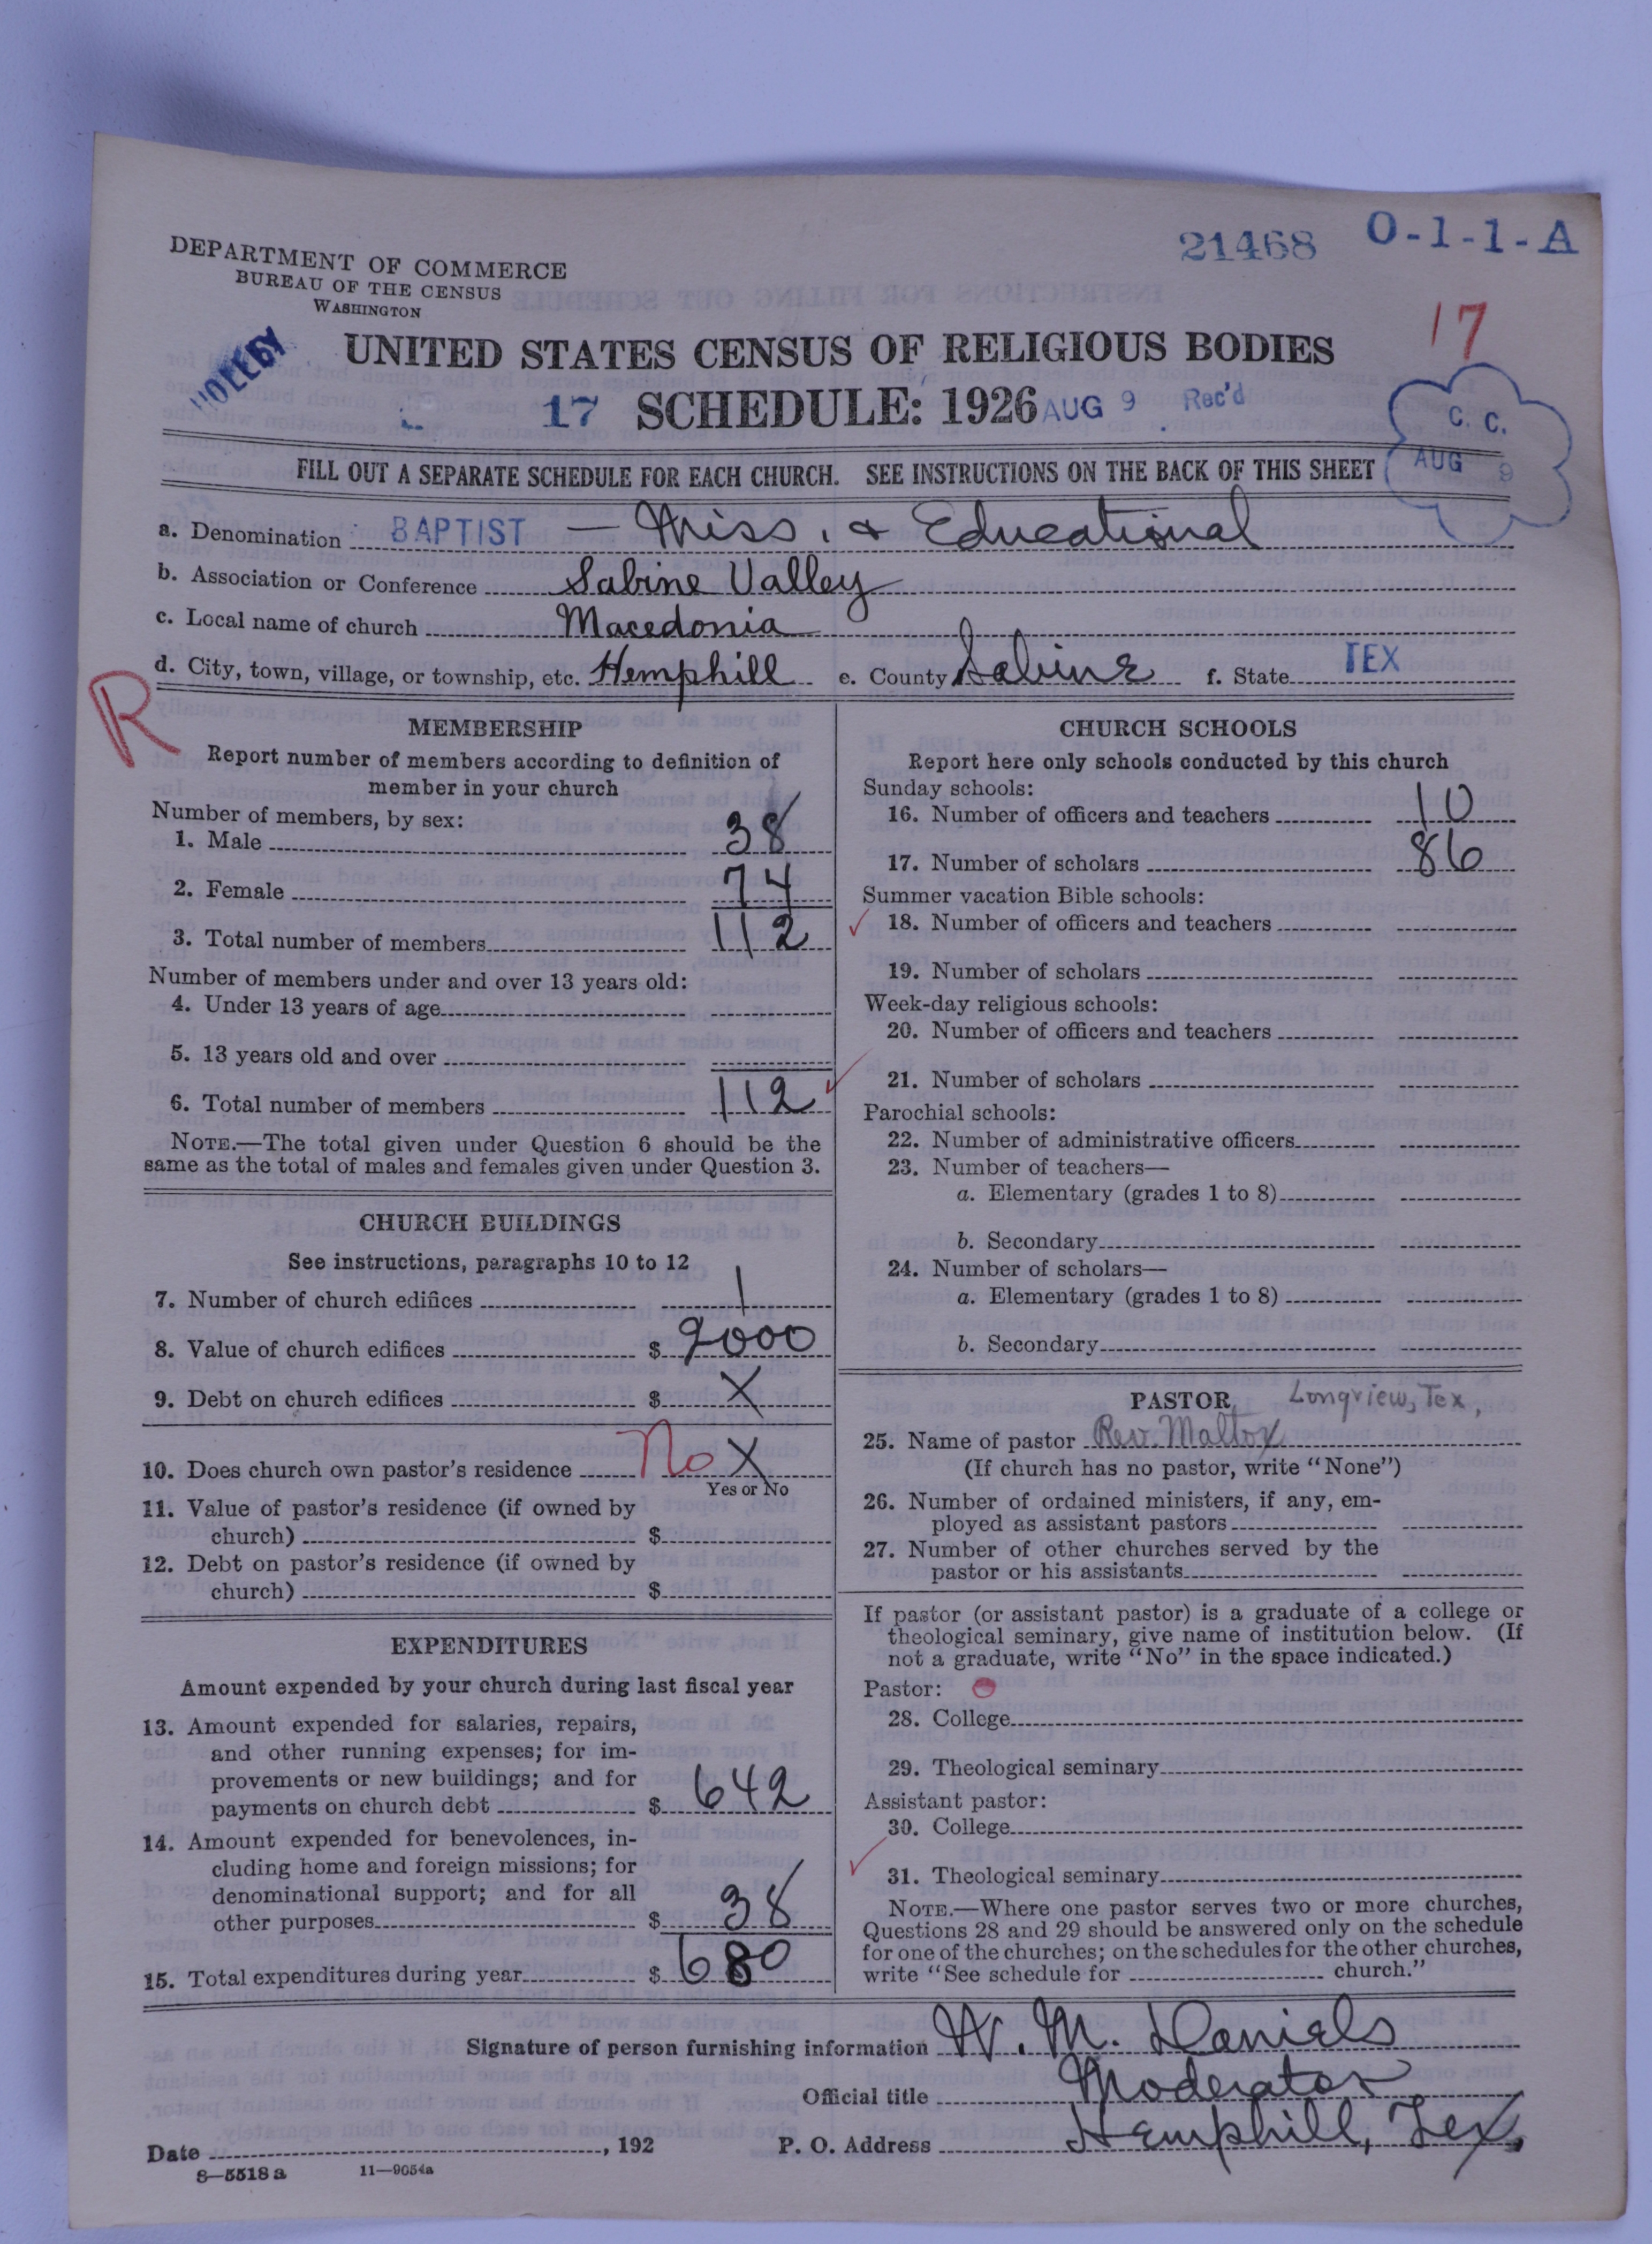 21468 O-1-1-A
DEPARTMENT OF COMMERCE
BUREAU OF THE CENSUS
WASHINGTON
17
UNITED STATES CENSUS OF RELIGIOUS BODIES
17 SCHEDULE: 1926 AUG 9 Rec'd
C. C.
AUG 9
FILL OUT A SEPARATE SCHEDULE FOR EACH CHURCH. SEE INSTRUCTIONS ON THE BACK OF THIS SHEET
a. Denomination BAPTIST — Miss. & Educational
b. Association or Conference Sabine Valley
c. Local name of church Macedonia
d. City, town, village, or township, etc. Hemphill e. County Sabine f. State TEX
R
MEMBERSHIP
Report number of members according to definition of
member in your church
Number of members, by sex:
1. Male 38
2. Female 74
3. Total number of members 112
Number of members under and over 13 years old:
4. Under 13 years of age
5. 13 years old and over
6. Total number of members 112
NOTE.—The total given under Question 6 should be the
same as the total of males and females given under Question 3.
CHURCH BUILDINGS
See instructions, paragraphs 10 to 12
7. Number of church edifices 1
8. Value of church edifices $ 2000
9. Debt on church edifices $ X
10. Does church own pastor's residence No X
Yes or No
11. Value of pastor's residence (if owned by
church) $
12. Debt on pastor's residence (if owned by
church) $
EXPENDITURES
Amount expended by your church during last fiscal year
13. Amount expended for salaries, repairs,
and other running expenses; for im-
provements or new buildings; and for
payments on church debt $ 642
14. Amount expended for benevolences, in-
cluding home and foreign missions; for
denominational support; and for all
other purposes $ 38
15. Total expenditures during year $ 680
CHURCH SCHOOLS
Report here only schools conducted by this church
Sunday schools:
16. Number of officers and teachers 10
17. Number of scholars 86
Summer vacation Bible schools:
18. Number of officers and teachers
19. Number of scholars
Week-day religious schools:
20. Number of officers and teachers
21. Number of scholars
Parochial schools:
22. Number of administrative officers
23. Number of teachers—
a. Elementary (grades 1 to 8)
b. Secondary
24. Number of scholars—
a. Elementary (grades 1 to 8)
b. Secondary
PASTOR Longview, Tex,
25. Name of pastor Rev. Mattox
(If church has no pastor, write "None")
26. Number of ordained ministers, if any, em-
ployed as assistant pastors
27. Number of other churches served by the
pastor or his assistants
If pastor (or assistant pastor) is a graduate of a college or
theological seminary, give name of institution below. (If
not a graduate, write "No" in the space indicated.)
Pastor:
28. College
29. Theological seminary
Assistant pastor:
30. College
31. Theological seminary
NOTE.—Where one pastor serves two or more churches,
Questions 28 and 29 should be answered only on the schedule
for one of the churches; on the schedules for the other churches,
write "See schedule for church."
Signature of person furnishing information W. M. Daniels
Official title Moderator
Date , 192 P. O. Address Hemphill, Tex,
8—5518 a 11—9054a